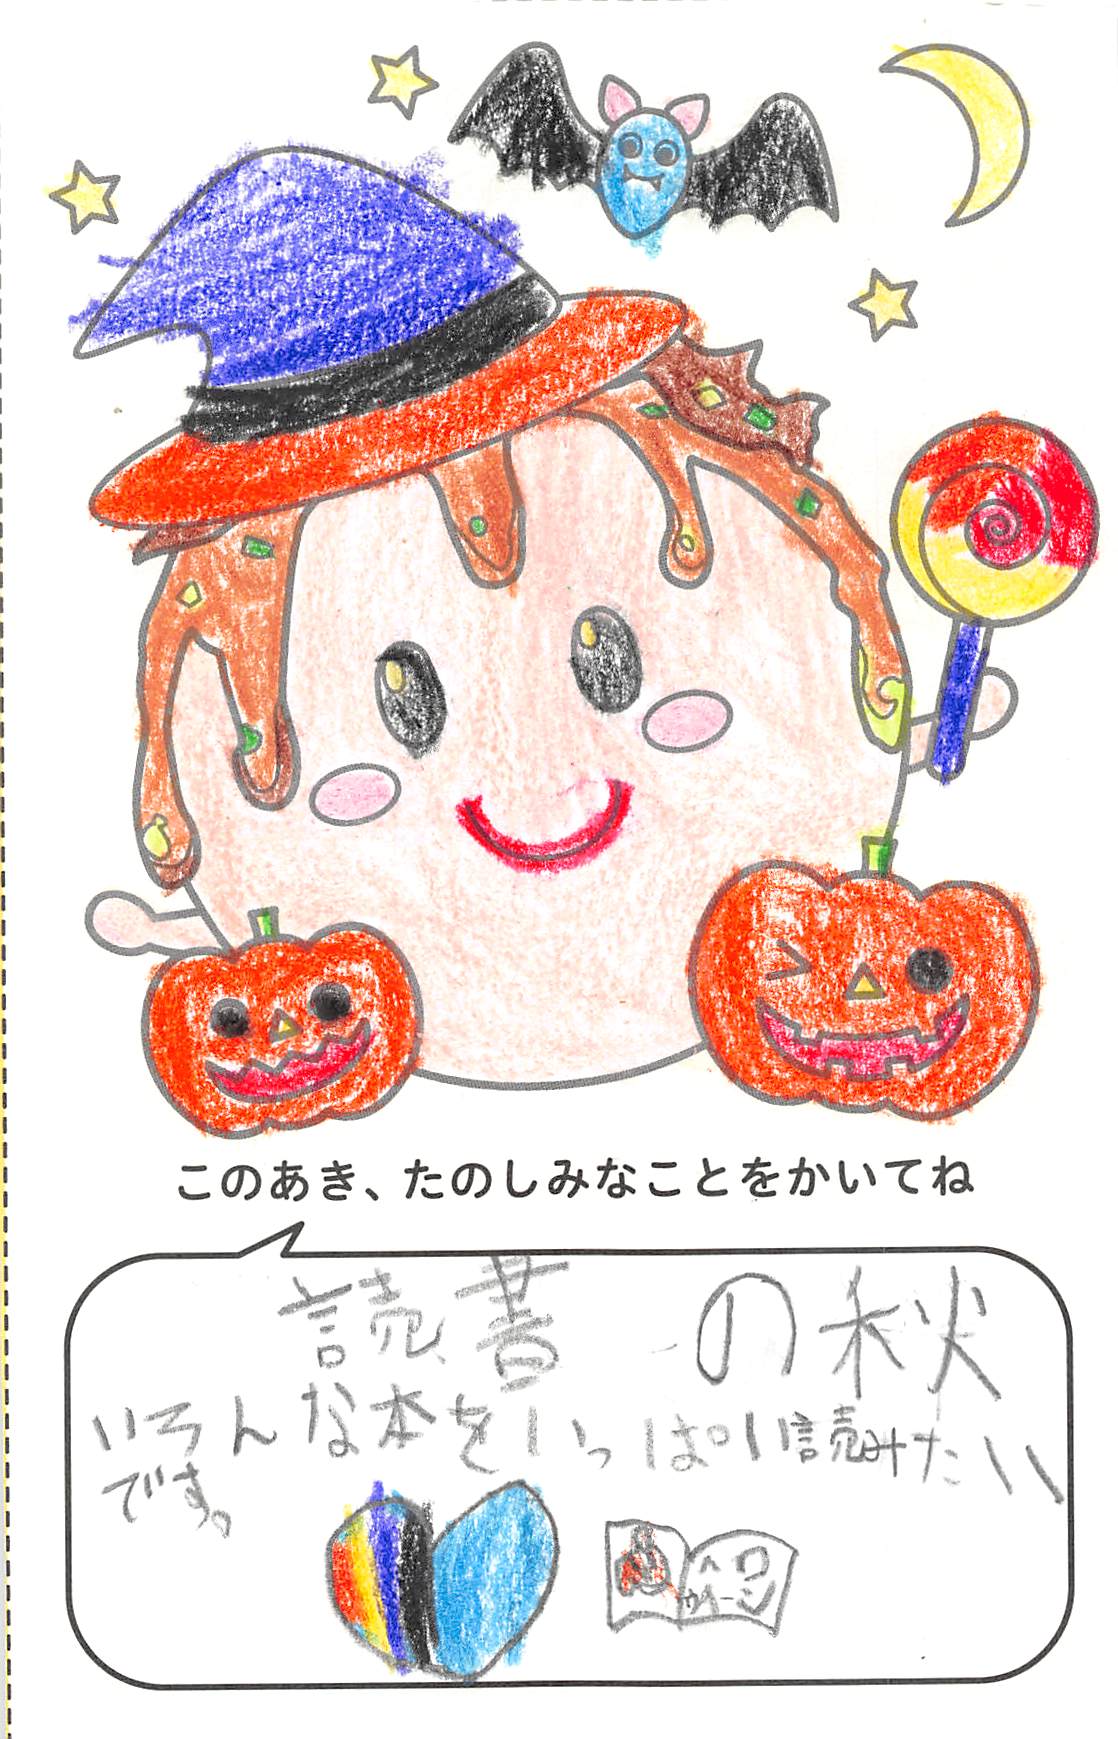 このあき、たのしみなことをかいてね
読書の秋
いろんな本をいっぱい読みたい
です。
ハロ
ウィーン